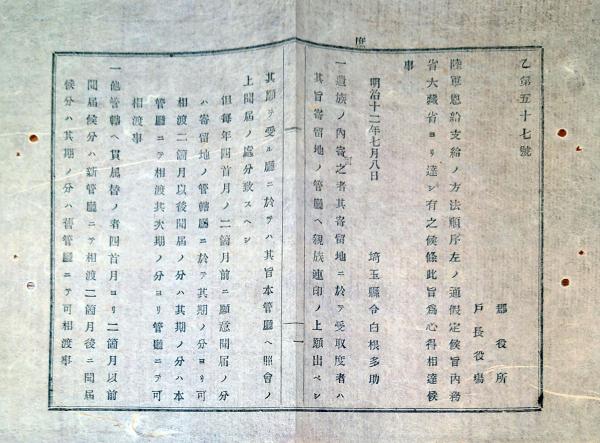 乙第五十七號
郡役所
戸長役場
陸軍恩給支給ノ方法順序左ノ通假定候旨內務
省大藏省ヨリ達シ有之候條此旨爲心得相達候
事
明治十二年七月八日
埼玉縣令白根多助
一遺族ノ內寄之者其寄留地ニ於テ受取度者ハ
其旨寄留地ノ管廳ヘ親族連印ノ上願出ベシ
其願ヲ受ル廳ニ於テハ其旨本管廳ヘ照會ノ
上聞屆ノ處分致スヘシ
但每年四首月ノ二箇月前ニ願意聞屆ノ分
ハ寄留地ノ管轄廳ニ於テ其期ノ分ヨリ可
相渡二箇月以後聞屆ノ分ハ其期ノ分ハ本
管廳ニテ相渡其次期ノ分ヨリ管廳ニテ可
相渡事
一他管轄ヘ貫屬替ノ者四首月ヨリ二箇月以前
聞屆候分ハ新管廳ニテ相渡二箇月後ニ聞屆
候分ハ其期ノ分ハ舊管廳ニテ可相渡事